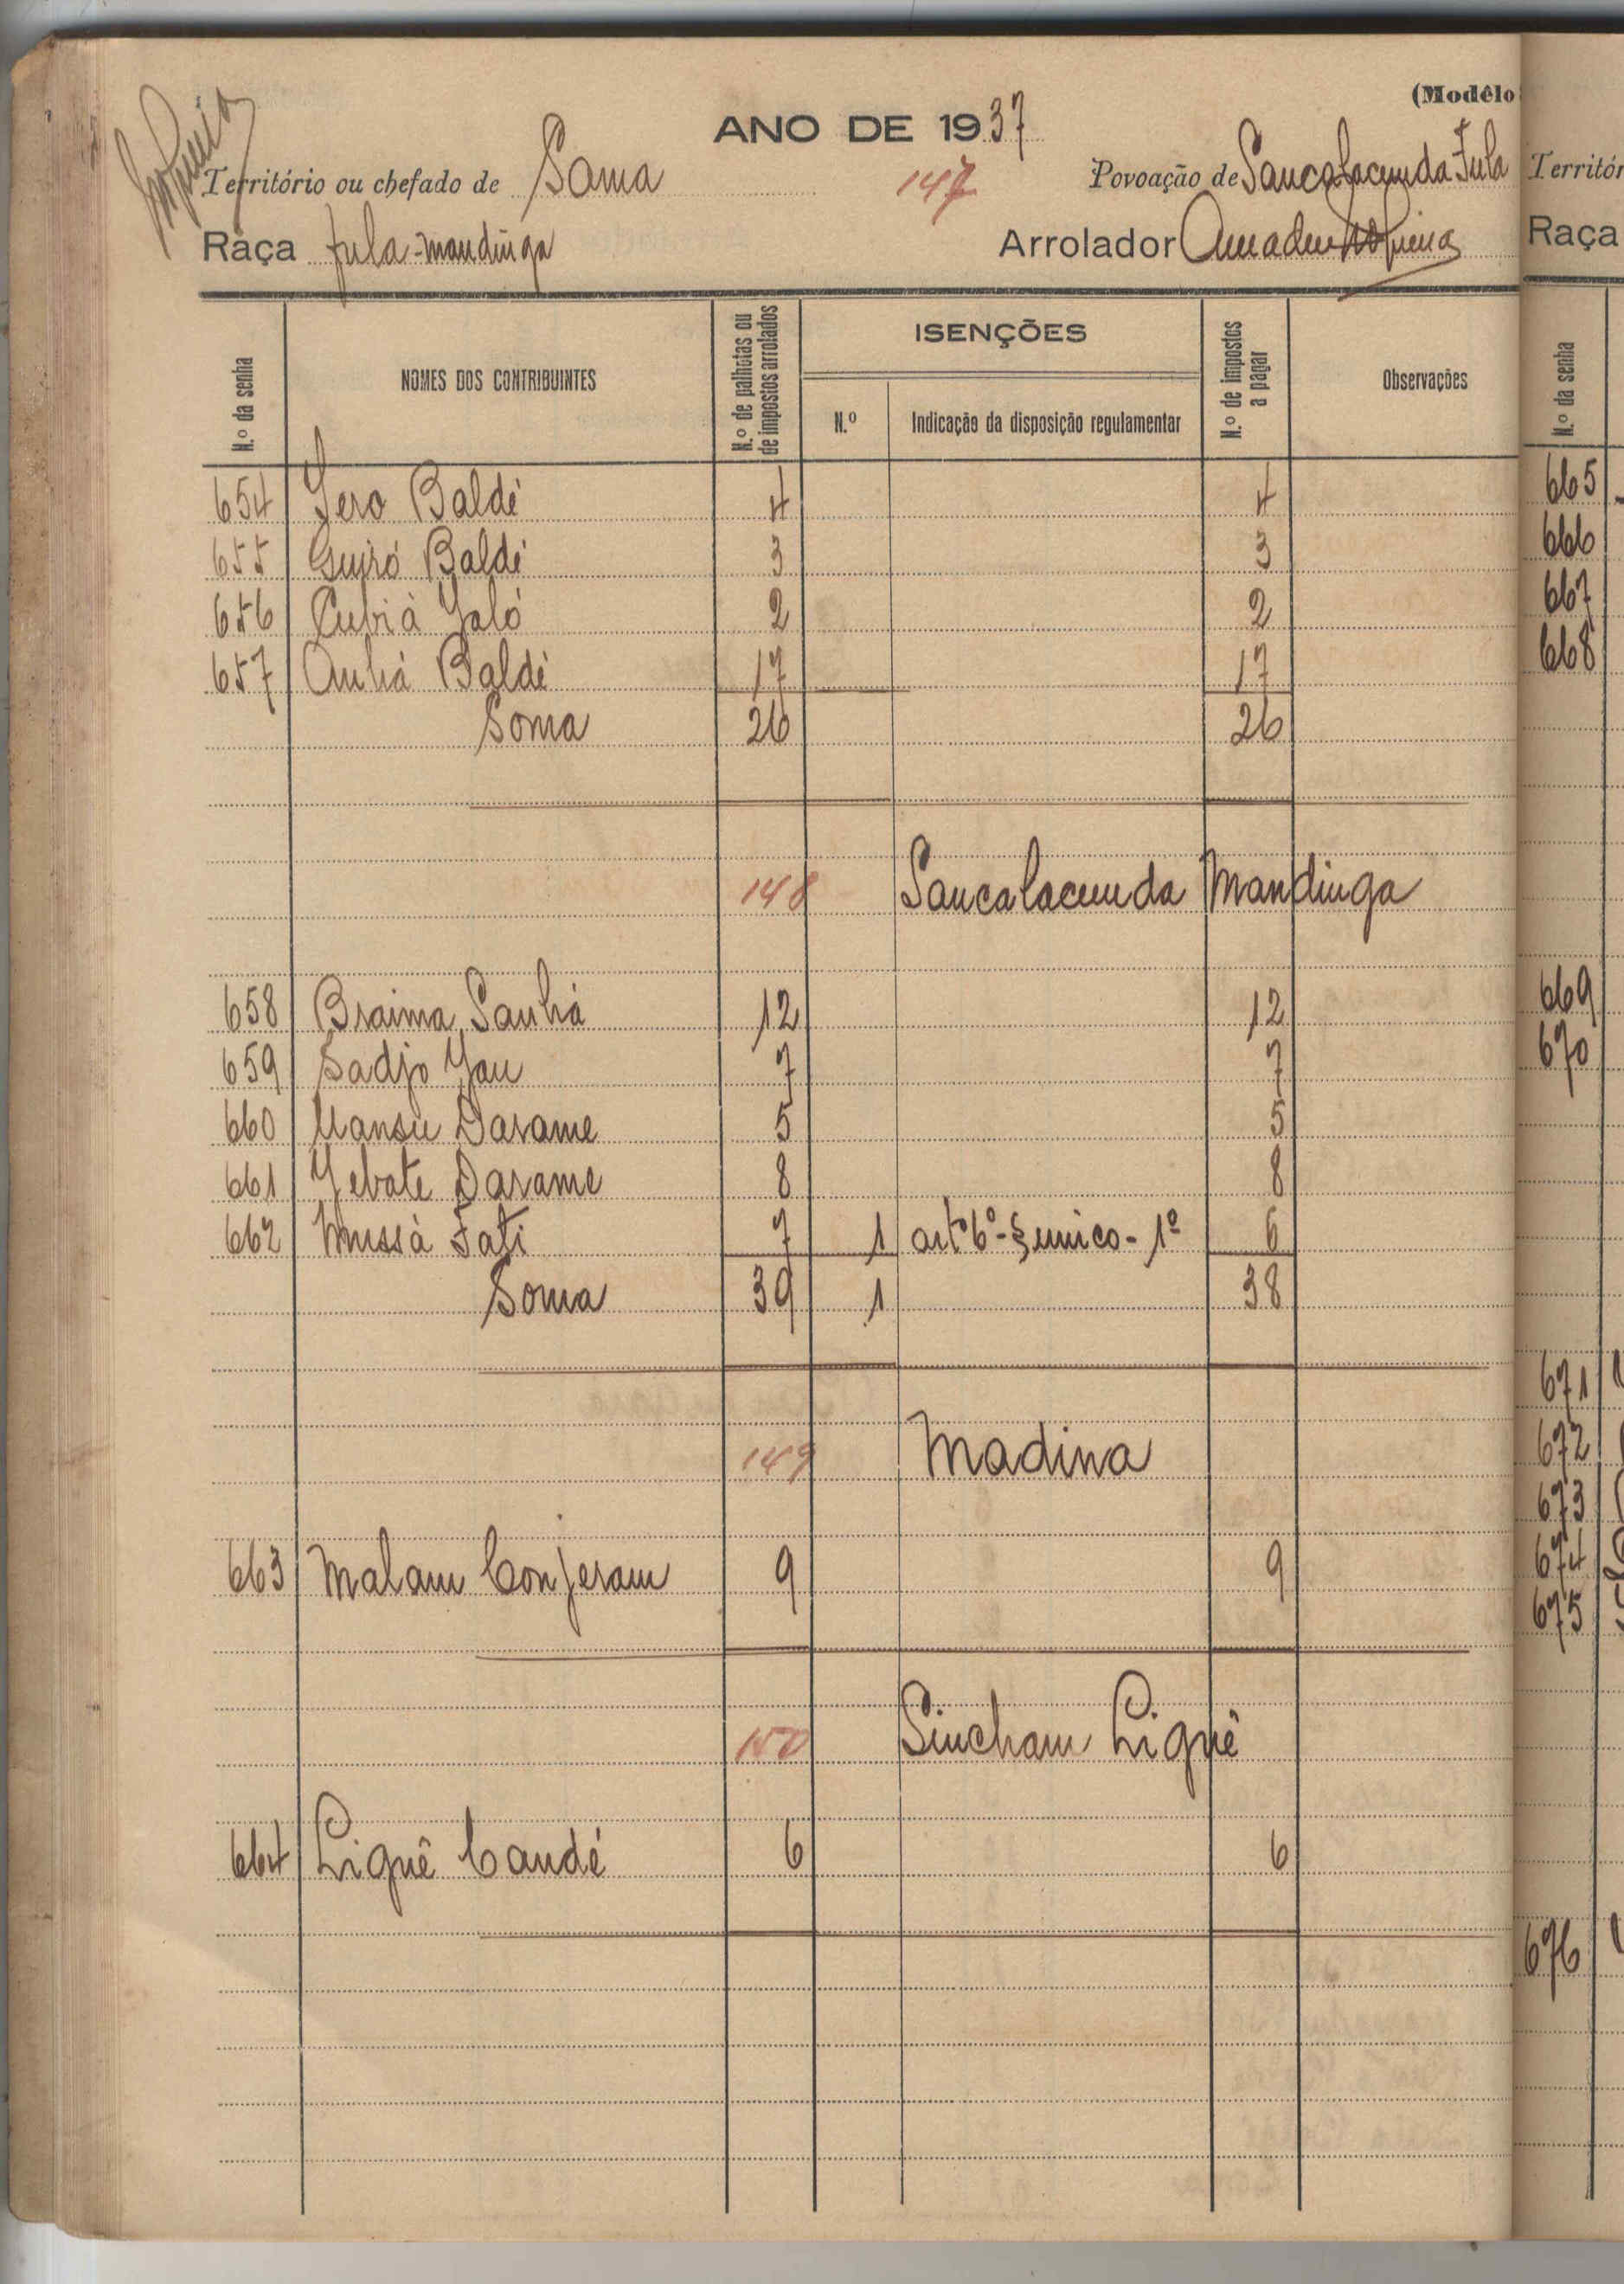 (Modêlo
ANO DE 1937
Território ou chefado de Sama 147 Povoação de Sancalacunda Fula
Raça Fula-mandinga Arrolador Amadeu Nogueira
N.º da senha NOMES DOS CONTRIBUINTES N.º de palhotas ou de impostos arrolados ISENÇÕES N.º Indicação da disposição regulamentar N.º de impostos a pagar Observações
654 Jero Baldé 4 4
655 Guiró Baldé 3 3
656 Cubià Jaló 2 2
657 Anhá Baldé 17 17
Soma 26 26
148 Sancalacunda Mandinga
658 Braima Sanhá 12 12
659 Sadjo Jau 7 7
660 Mansu Darame 5 5
661 Jebate Darame 8 8
662 Mussà Fati 7 1 artº 6º-§ unico-1º 6
Soma 39 1 38
149 Madina
663 Malam Conjeram 9 9
150 Sincham Liguê
664 Liguê Candé 6 6
Territór
Raça
N.º da senha
665
666
667
668
669
670
671
672
673
674
675
676